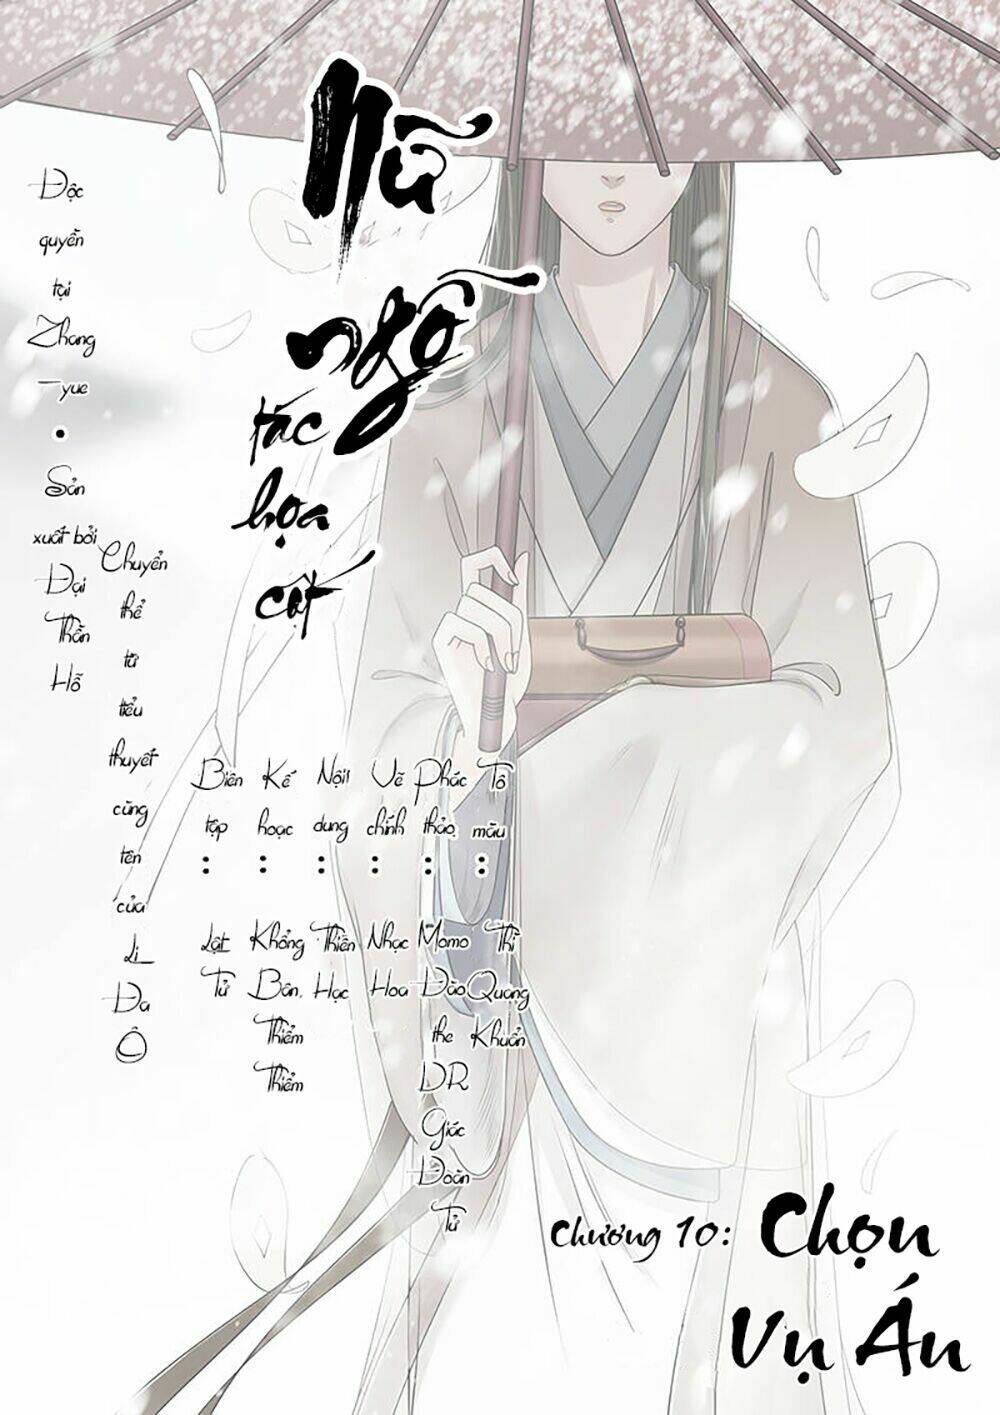 Nữ
ngỗ
tác
họa
cốt
Độc
quyền
tại
Zhang
-yue
•
Sản
xuất bởi
Đại
Thần
Hỗ
Chuyển
thể
từ
tiểu
thuyết
cùng
tên
của
Li_
Đa
Ô
Biên tập : Lật Tử
Kế hoạc : Khổng Bân, Thiểm Thiểm
Nội dung : Thiên Hạc
Vẽ chính : Nhạc Hoa
Phác thảo : Momo Đào the DR Giác Đoàn Tử
Tô màu : Thì Quang Khuẩn
Chương 10:
Chọn
Vụ Án